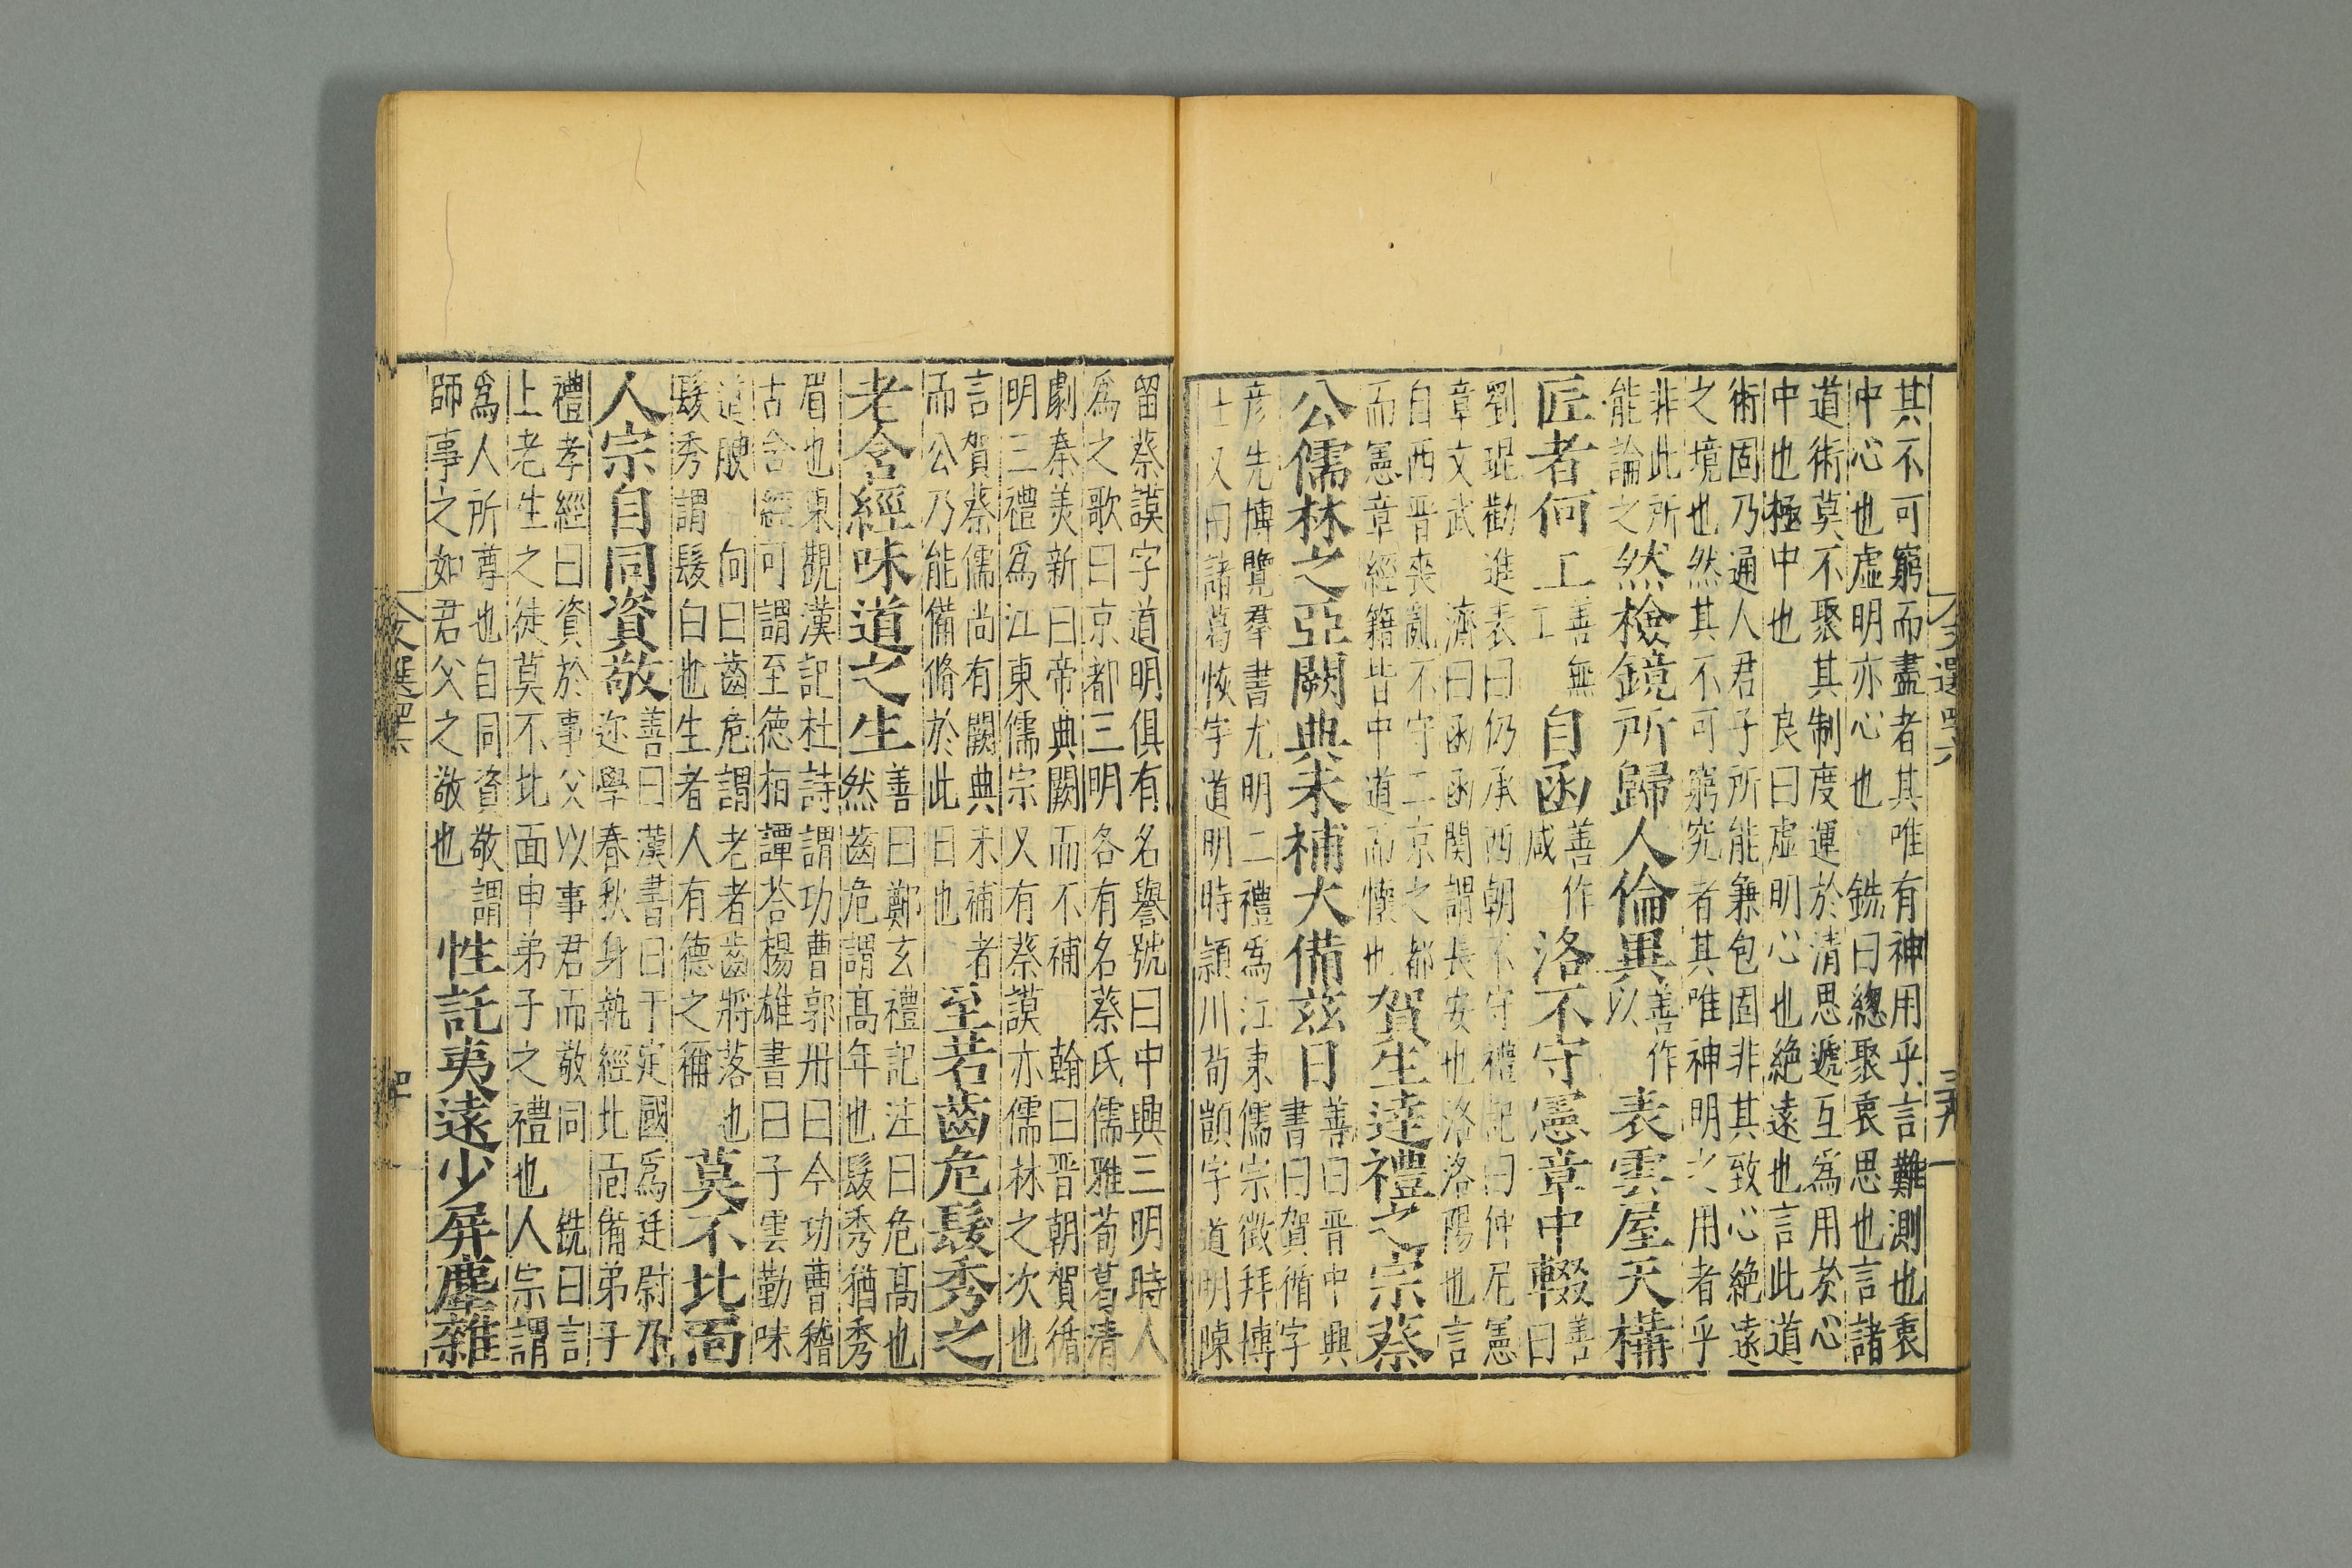 其不可窮而盡者其唯有神用乎言難測也衷
中心也虛明亦心也 銑曰緫聚衷思也言諸
道術莫不聚其制度運於清思遞互爲用於心
中也極中也 良曰虛明心也絶遠也言此道
術固乃通人君子所能兼包固非其致心絶遠
之境也然其不可窮究者其唯神明之用者乎
非此所
能論之
然檢鏡所歸人倫異
善作
以
表雲屋天構
匠者何工
善無
工
自函
善作
咸
洛不守憲章中輟
善
曰
劉琨勸進表曰仍承西朝不守禮記曰仲尼憲
章文武 濟曰函函関謂長安也洛洛陽也言
自西晋喪亂不守二京之都
而憲章經籍皆中道而懷也
賀生逹禮之宗蔡
公儒林之亞闕典未補大備兹日
善曰晋中興
書曰賀循字
彦先博覽羣書尤明二禮爲江東儒宗徵拜博
士又曰諸葛恢字道明時潁川荀顗字道明陳
留蔡謨字道明俱有名譽號曰中興三明時人
爲之歌曰京都三明各有名蔡氏儒雅荀葛清
劇秦美新曰帝典闕而不補 翰曰晋朝賀循
明三禮爲江東儒宗又有蔡謨亦儒林之次也
言賀蔡儒尚有闕典未補者
而公乃能備脩於此日也
至若齒危髮秀之
老含經味道之生
善曰鄭玄禮記注曰危髙也
然齒危謂髙年也髮秀猶秀
眉也東觀漢記杜詩謂功曹郭丹曰今功曹稽
古含經可謂至徳栢譚荅楊雄書曰子雲勤味
道腴 向曰齒危謂老者齒將落也
髮秀謂髮白也生者人有德之稱
莫不北面
人宗自同資敬
善曰漢書曰于定國爲廷尉乃
迎學春秋身執經北面備弟子
禮孝經曰資於事父以事君而敬同 銑曰言
上老生之徒莫不北面申弟子之禮也人宗謂
爲人所尊也自同資敬謂
師事之如君父之敬也
性託夷遠少屏塵雜